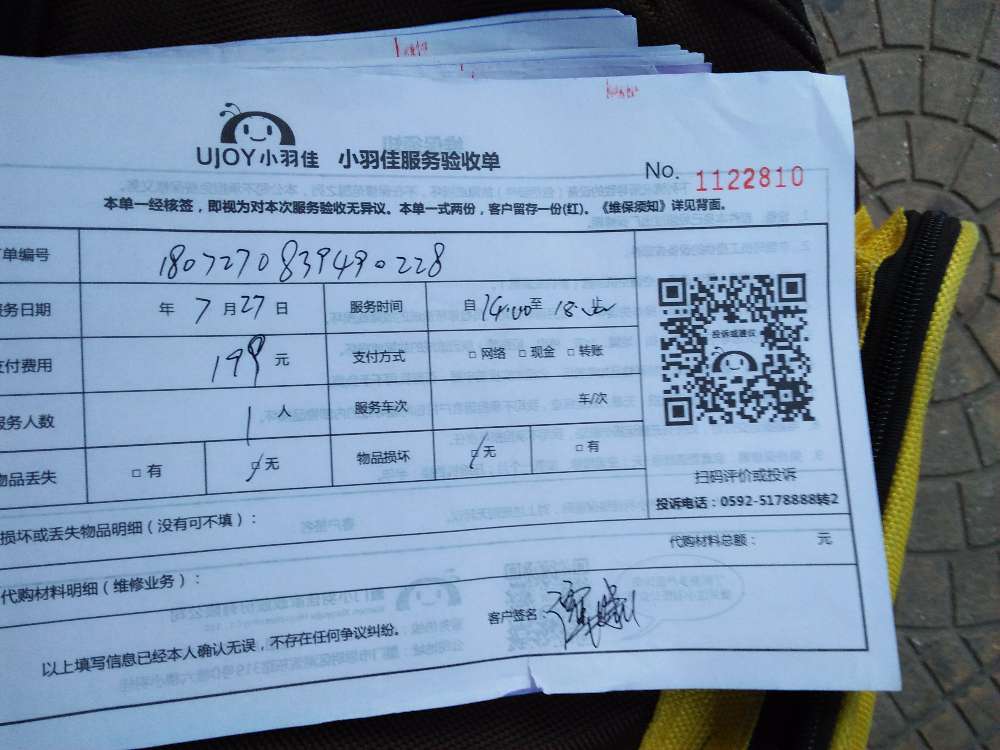 UJOY小羽佳 小羽佳服务验收单
No. 1122810
本单一经核签，即视为对本次服务验收无异议。本单一式两份，客户留存一份(红)。《维保须知》详见背面。
单编号 1807270839490228
服务日期 年 7 月 27 日 服务时间 自 14:00 至 18 止
支付费用 199 元 支付方式 □ 网络 □ 现金 □ 转账
服务人数 1 人 服务车次 车/次
物品丢失 □ 有 □ 无 物品损坏 □ 无 □ 有
投诉或建议
扫码评价或投诉
投诉电话：0592-5178888转2
损坏或丢失物品明细（没有可不填）：
代购材料总额： 元
代购材料明细（维修业务）：
客户签名：
以上填写信息已经本人确认无误，不存在任何争议纠纷。